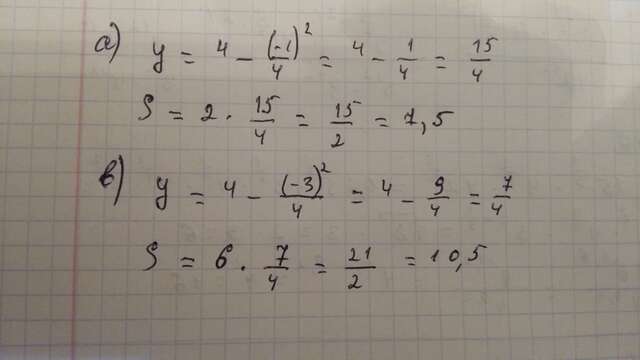 а) y = 4 - (-1)²/4 = 4 - 1/4 = 15/4
S = 2 · 15/4 = 15/2 = 7,5
в) y = 4 - (-3)²/4 = 4 - 9/4 = 7/4
S = 6 · 7/4 = 21/2 = 10,5